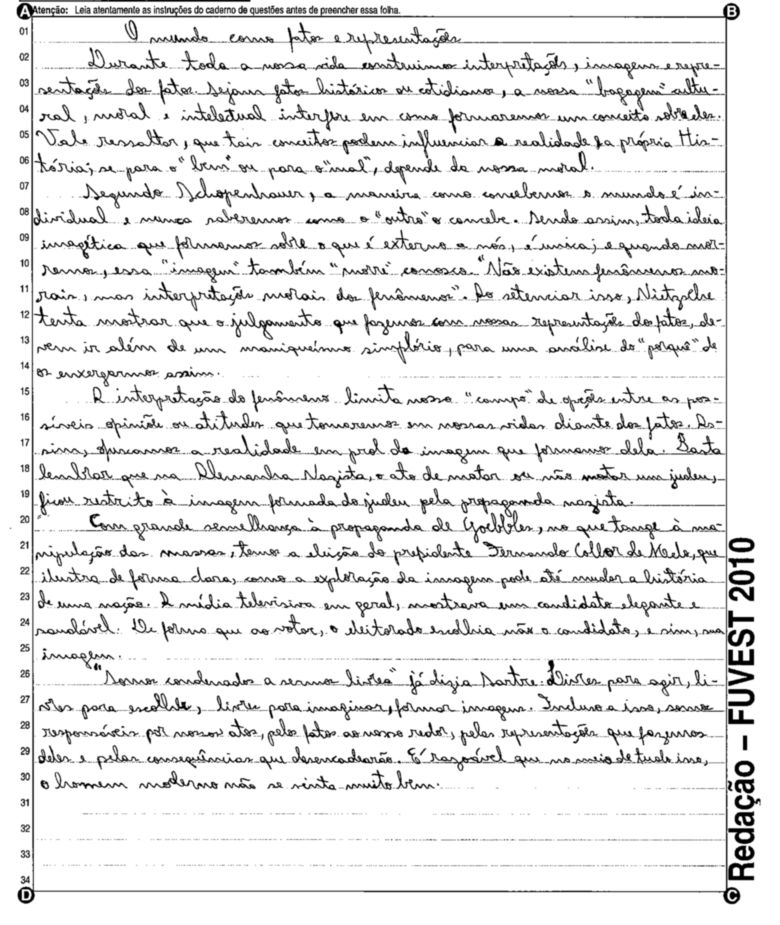 Atenção: Leia atentamente as instruções do caderno de questões antes de preencher essa folha.
A
B
01 O mundo como fatos e representações
02 Durante toda a nossa vida construimos interpretações, imagens e repre-
03 sentações dos fatos. Sejam fatos históricos ou cotidianos, a nossa "bagagem" cultu-
04 ral, moral e intelectual interfere em como formaremos um conceito sobre eles.
05 Vale ressaltar, que tais conceitos podem influenciar a realidade da própria His-
06 tória; se para o "bem" ou para o "mal", depende da nossa moral.
07 Segundo Schopenhauer, a maneira como concebemos o mundo é in-
08 dividual e nunca saberemos como o "outro" o concebe. Sendo assim, toda ideia
09 imagética que formamos sobre o que é externo a nós, é única; e quando mor-
10 remos, essa "imagem" também "morre" conosco. "Não existem fenômenos mo-
11 rais, mas interpretações morais dos fenômenos". Ao setenciar isso, Nietzsche
12 tenta mostrar que o julgamento que fazemos com nossas representações dos fatos, de-
13 vem ir além de um maniqueísmo simplório, para uma análise do "porque" de
14 os enxergarmos assim.
15 A interpretação do fenômeno limita nosso "campo" de opções entre as pos-
16 síveis opiniões ou atitudes que tomaremos em nossas vidas diante dos fatos. As-
17 sim, operamos a realidade em prol da imagem que formamos dela. Basta
18 lembrar que na Alemanha Nazista, o ato de matar ou não matar um judeu,
19 ficou restrito à imagem formada do judeu pela propaganda nazista.
20 Com grande semelhança à propaganda de Goebbles, no que tange à ma-
21 nipulação das massas, temos a eleição do presidente Fernando Collor de Melo, que
22 ilustra de forma clara, como a exploração da imagem pode até mudar a história
23 de uma nação. A mídia televisiva em geral, mostrava um candidato elegante e
24 saudável. De forma que ao votar, o eleitorado escolhia não o candidato, e sim, sua
25 imagem.
26 "Somos condenados a sermos livres" já dizia Sartre. Livres para agir, li-
27 vres para escolher, livres para imaginar, formar imagens. Incluso a isso, somos
28 responsáveis por nossos atos, pelos fatos ao nosso redor, pelas representações que fazemos
29 deles e pelas consequências que desencadearão. É razoável que no meio de tudo isso,
30 o homem moderno não se sinta muito bem.
31
32
33
34
D
C
Redação – FUVEST 2010